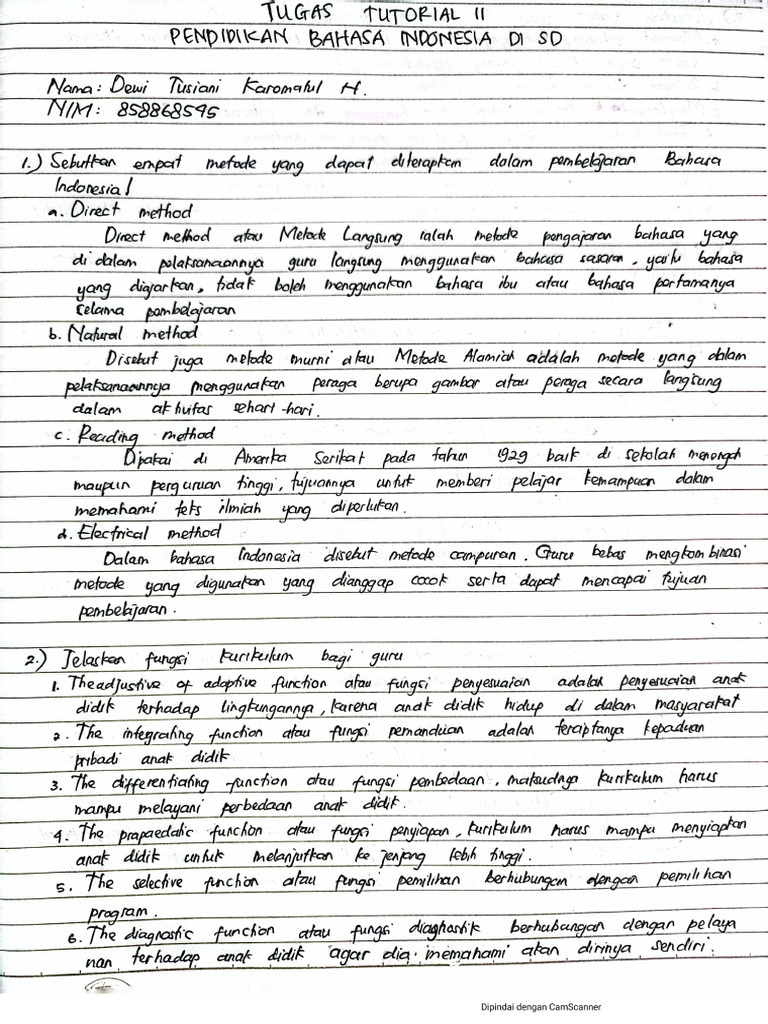 TUGAS TUTORIAL II
PENDIDIKAN BAHASA INDONESIA DI SD
Nama: Dewi Tusiani Karomatul H.
NIM: 858868595
1.) Sebutkan empat metode yang dapat diterapkan dalam pembelajaran Bahasa
Indonesia!
a. Direct method
Direct method atau Metode Langsung ialah metode pengajaran bahasa yang
di dalam pelaksanaannya guru langsung menggunakan bahasa sasaran, yaitu bahasa
yang diajarkan, tidak boleh menggunakan bahasa ibu atau bahasa pertamanya
selama pembelajaran
b. Natural method
Disebut juga metode murni atau Metode Alamiah adalah metode yang dalam
pelaksanaannya menggunakan peraga berupa gambar atau peraga secara langsung
dalam aktivitas sehari-hari.
c. Reading method
Dipakai di Amerika Serikat pada tahun 1929 baik di sekolah menengah
maupun perguruan tinggi, tujuannya untuk memberi pelajar kemampuan dalam
memahami teks ilmiah yang diperlukan.
d. Electrical method
Dalam bahasa Indonesia disebut metode campuran. Guru bebas mengkombinasi
metode yang digunakan yang dianggap cocok serta dapat mencapai tujuan
pembelajaran.
2.) Jelaskan fungsi kurikulum bagi guru
1. The adjustive of adaptive function atau fungsi penyesuaian adalah penyesuaian anak
didik terhadap lingkungannya, karena anak didik hidup di dalam masyarakat
2. The integrating function atau fungsi pemanduan adalah terciptanya kepaduan
pribadi anak didik
3. The differentiating function atau fungsi pembedaan, maksudnya kurikulum harus
mampu melayani perbedaan anak didik.
4. The prapaedatic function atau fungsi penyiapan, kurikulum harus mampu menyiapkan
anak didik untuk melanjutkan ke jenjang lebih tinggi.
5. The selective function atau fungsi pemilihan berhubungan dengan pemilihan
program.
6. The diagnostic function atau fungsi diagnostik berhubungan dengan pelaya
nan terhadap anak didik agar dia memahami akan dirinya sendiri.
Dipindai dengan CamScanner